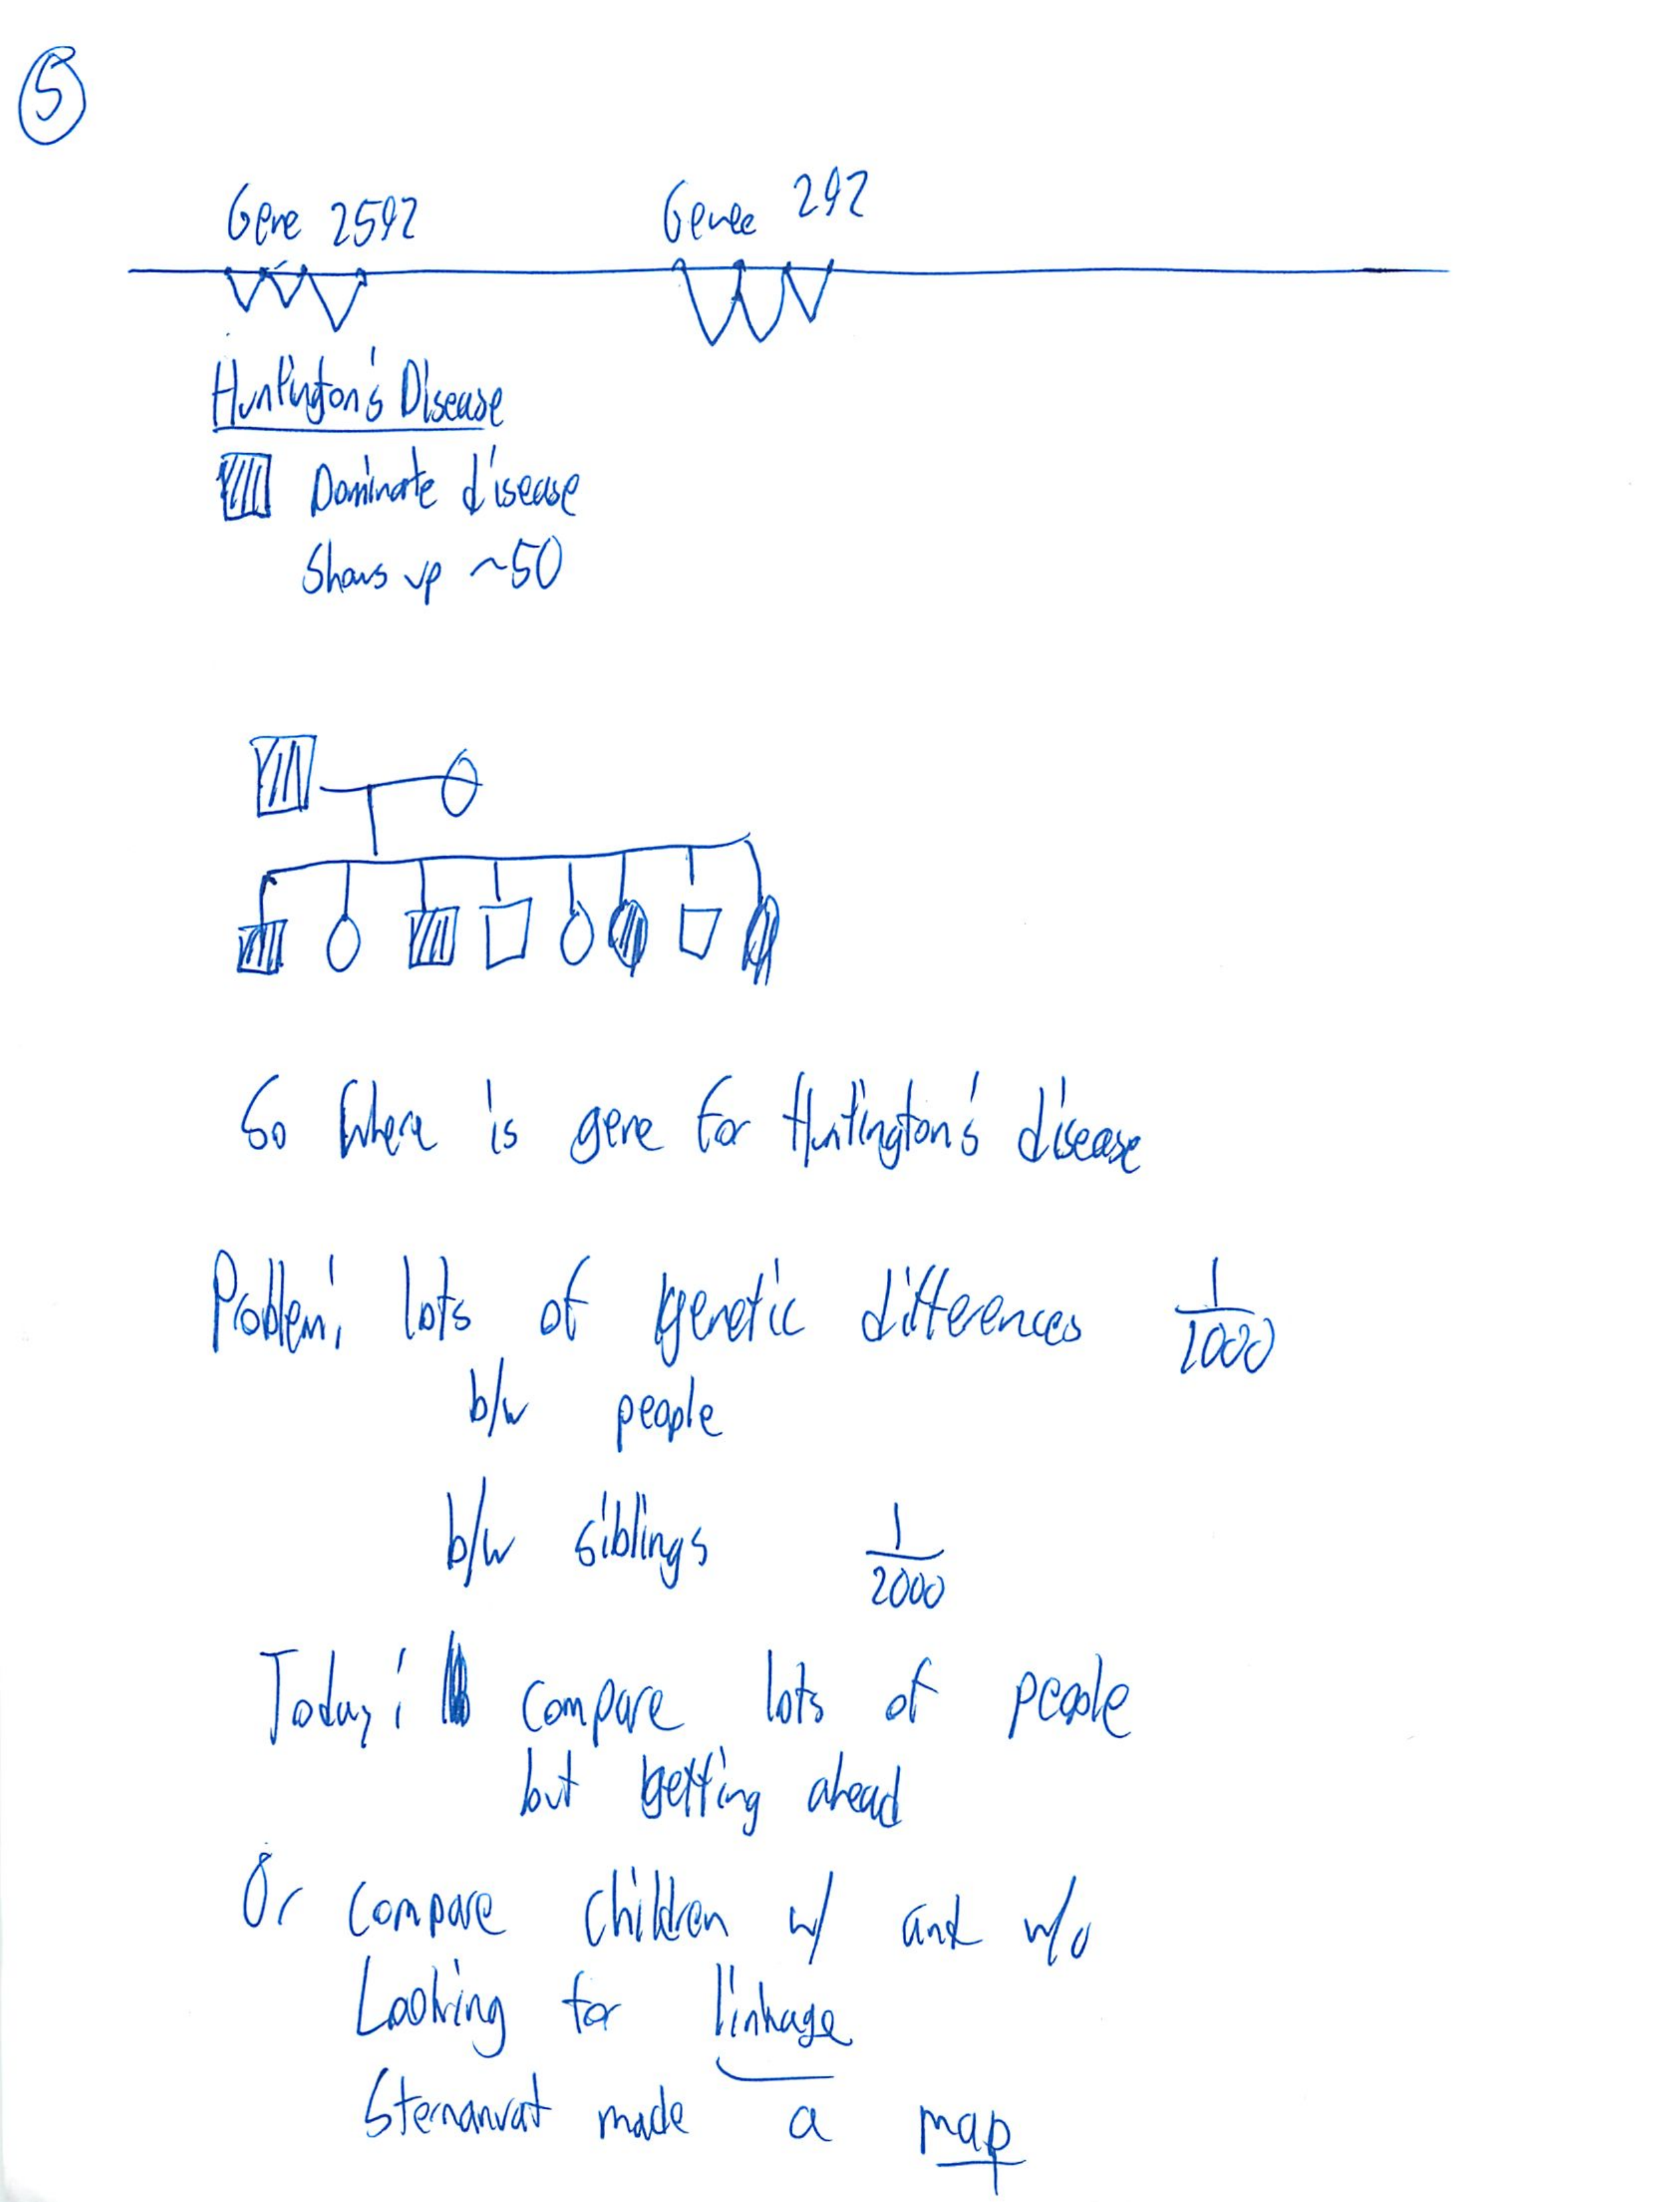 5
Gene 2592 Genee 292
Huntington's Disease
Dominate disease
Shows up ~50
So where is gene for Huntington's disease
Problem: lots of genetic differences 1/1000
b/w people
b/w siblings 1/2000
Today: compare lots of people
but getting ahead
Or compare children w/ and w/o
Looking for linkage
made a map